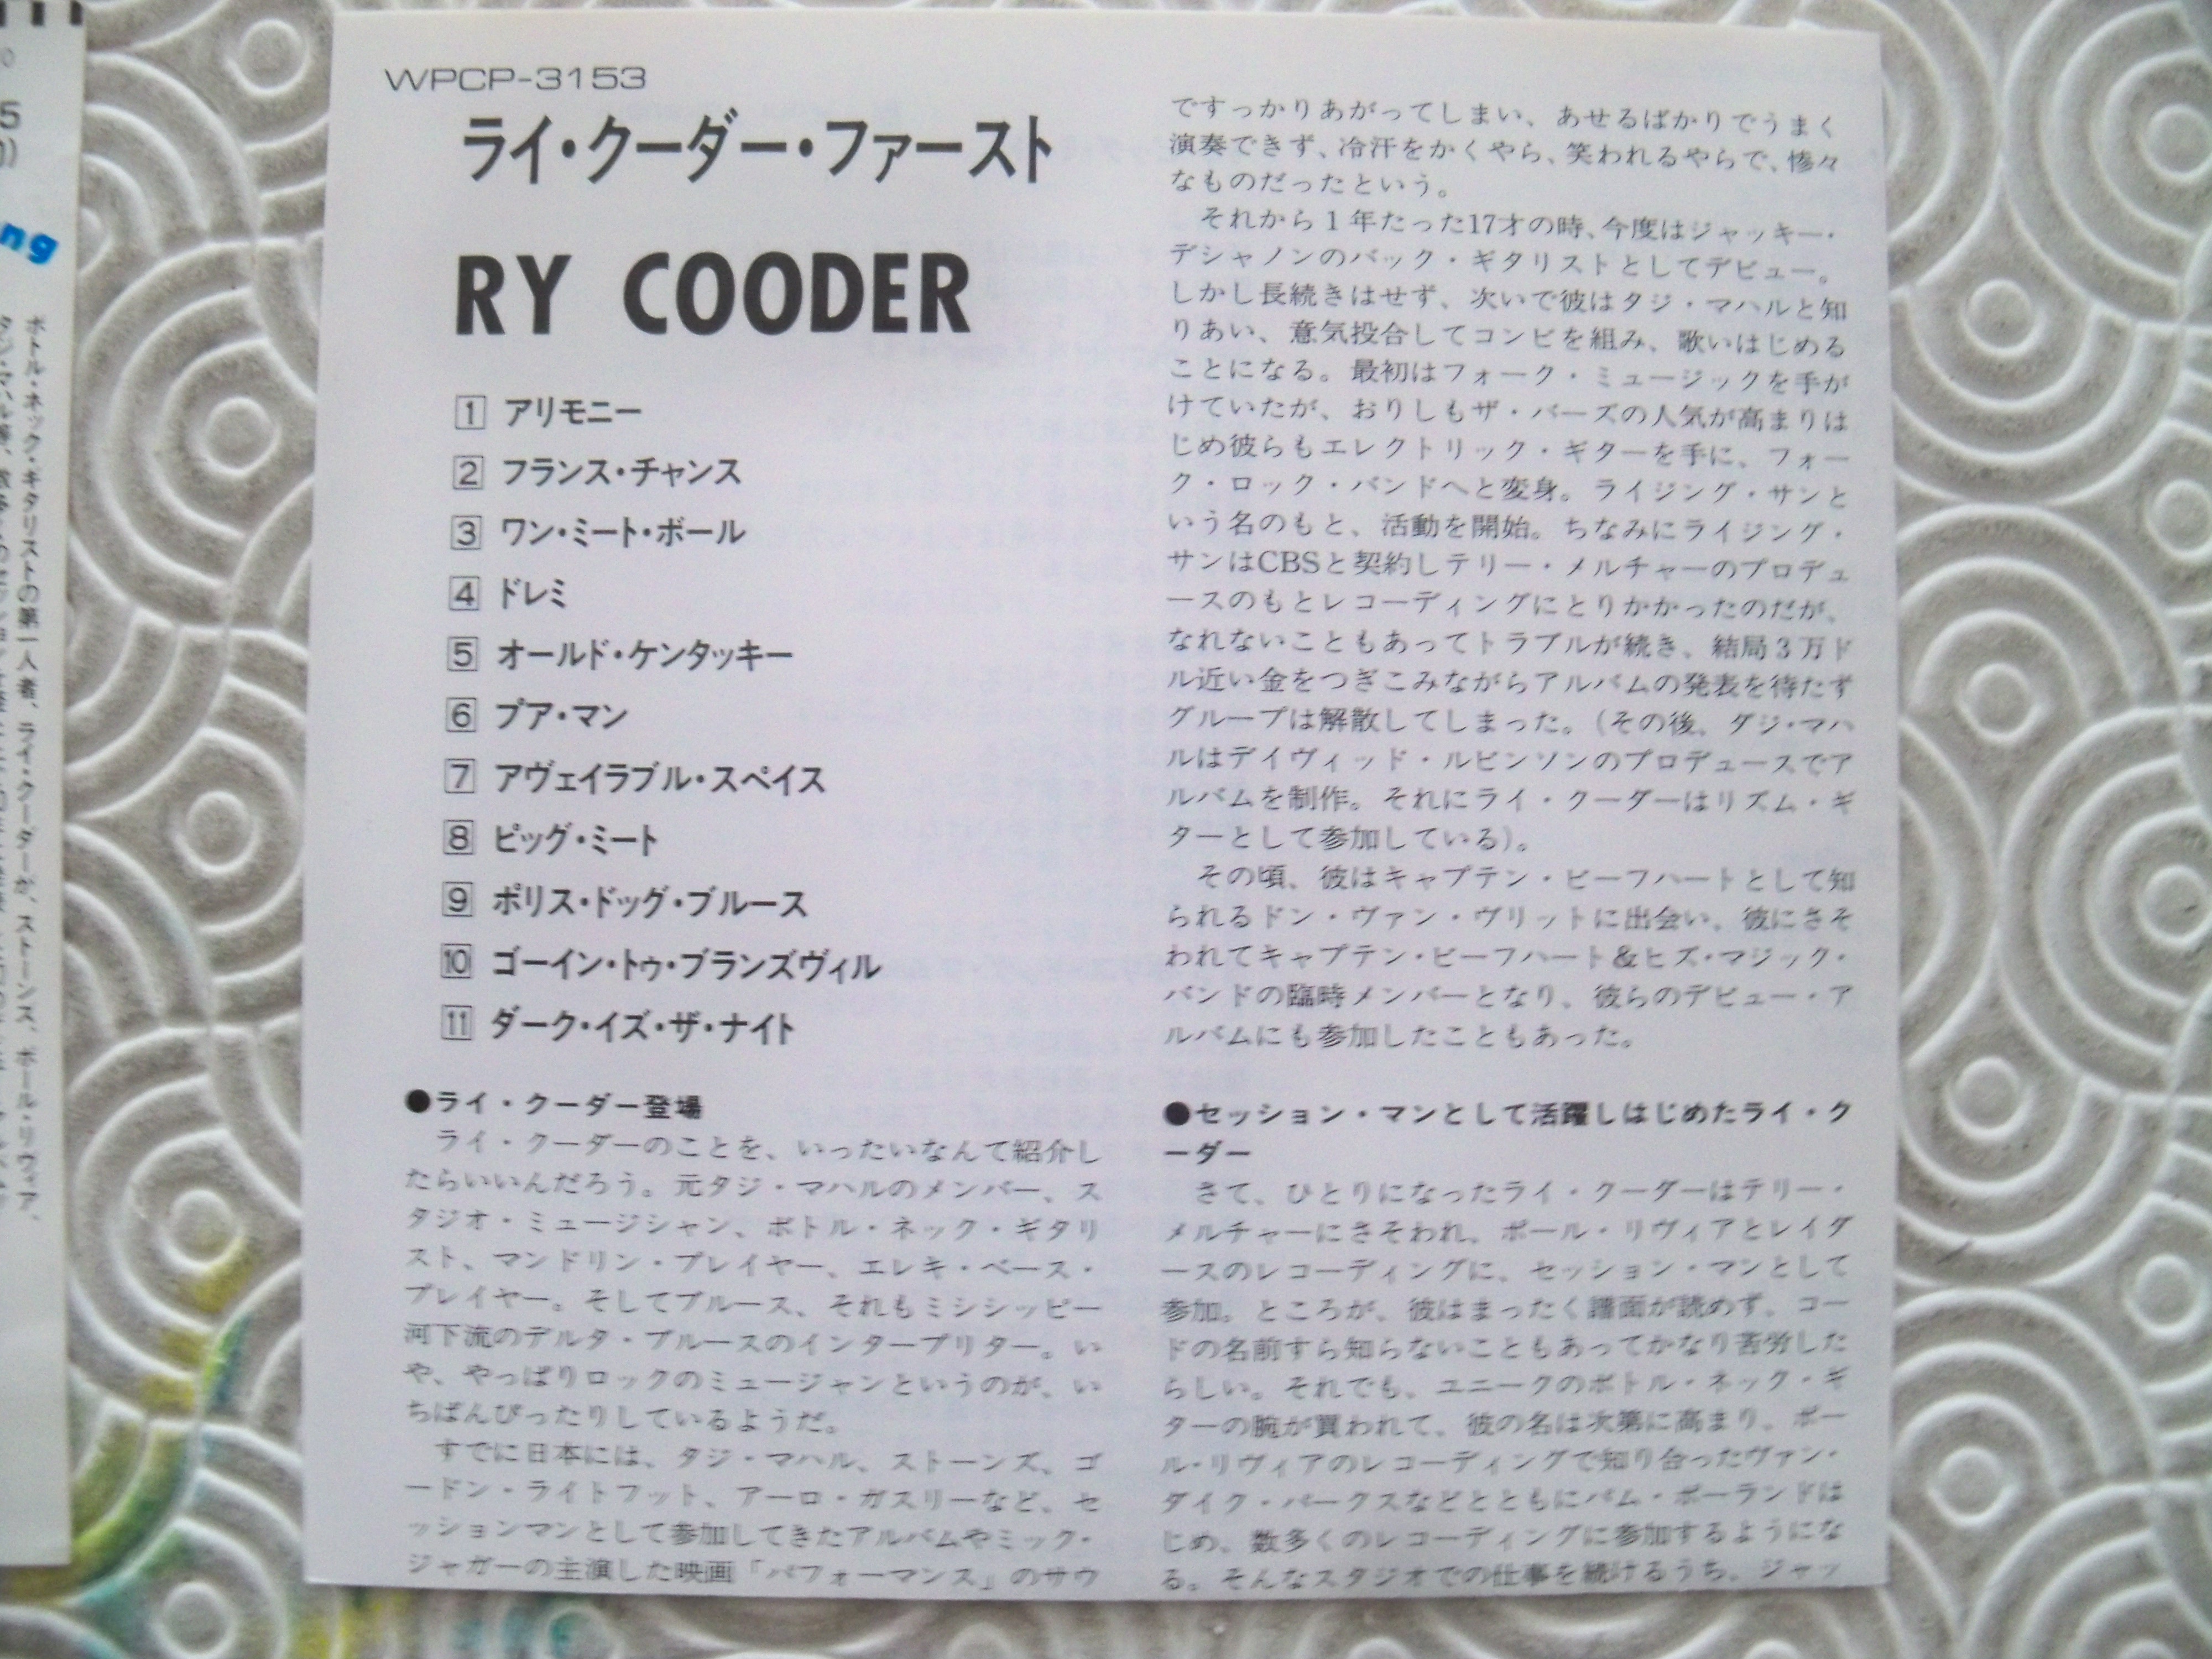 WPCP-3153
ライ・クーダー・ファースト
RY COODER
1 アリモニー
2 フランス・チャンス
3 ワン・ミート・ボール
4 ドレミ
5 オールド・ケンタッキー
6 プア・マン
7 アヴェイラブル・スペイス
8 ピッグ・ミート
9 ポリス・ドッグ・ブルース
10 ゴーイン・トゥ・ブランズヴィル
11 ダーク・イズ・ザ・ナイト
●ライ・クーダー登場
ライ・クーダーのことを、いったいなんて紹介し
たらいいんだろう。元タジ・マハルのメンバー、ス
タジオ・ミュージシャン、ボトル・ネック・ギタリ
スト、マンドリン・プレイヤー、エレキ・ベース・
プレイヤー。そしてブルース、それもミシシッピー
河下流のデルタ・ブルースのインタープリター。い
や、やっぱりロックのミュージャンというのが、い
ちばんぴったりしているようだ。
すでに日本には、タジ・マハル、ストーンズ、ゴ
ードン・ライトフット、アーロ・ガスリーなど、セ
ッションマンとして参加してきたアルバムやミック・
ジャガーの主演した映画「パフォーマンス」のサウ
ですっかりあがってしまい、あせるばかりでうまく
演奏できず、冷汗をかくやら、笑われるやらで、惨々
なものだったという。
それから1年たった17才の時、今度はジャッキー・
デシャノンのバック・ギタリストとしてデビュー。
しかし長続きはせず、次いで彼はタジ・マハルと知
りあい、意気投合してコンビを組み、歌いはじめる
ことになる。最初はフォーク・ミュージックを手が
けていたが、おりしもザ・バーズの人気が高まりは
じめ彼らもエレクトリック・ギターを手に、フォー
ク・ロック・バンドへと変身。ライジング・サンと
いう名のもと、活動を開始。ちなみにライジング・
サンはCBSと契約しテリー・メルチャーのプロデュ
ースのもとレコーディングにとりかかったのだが、
なれないこともあってトラブルが続き、結局3万ド
ル近い金をつぎこみながらアルバムの発表を待たず
グループは解散してしまった。(その後、タジ・マハ
ルはデイヴィッド・ルビンソンのプロデュースでア
ルバムを制作。それにライ・クーダーはリズム・ギ
ターとして参加している)。
その頃、彼はキャプテン・ビーフハートとして知
られるドン・ヴァン・ヴリットに出会い、彼にさそ
われてキャプテン・ビーフハート&ヒズ・マジック・
バンドの臨時メンバーとなり、彼らのデビュー・ア
ルバムにも参加したこともあった。
●セッション・マンとして活躍しはじめたライ・ク
ーダー
さて、ひとりになったライ・クーダーはテリー・
メルチャーにさそわれ、ポール・リヴィアとレイダ
ースのレコーディングに、セッション・マンとして
参加。ところが、彼はまったく譜面が読めず、コー
ドの名前すら知らないこともあってかなり苦労した
らしい。それでも、ユニークのボトル・ネック・ギ
ターの腕が買われて、彼の名は次第に高まり、ポー
ル・リヴィアのレコーディングで知り合ったヴァン・
ダイク・パークスなどとともにパム・ポーランドは
じめ、数多くのレコーディングに参加するようにな
る。そんなスタジオでの仕事を続けるうち、ジャッ
ng
ボトル・ネック・ギタリストの第一人者、ライ・クーダーが、ストーンズ、ポール・リヴィア、